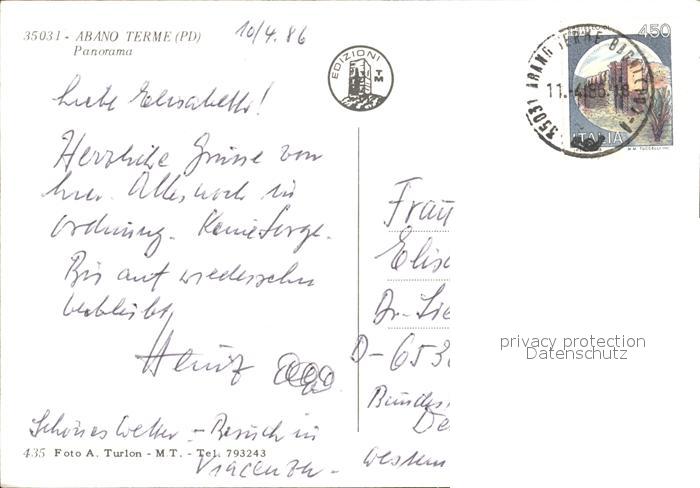 35031 - ABANO TERME (PD)
Panorama
10/4.86
EDIZIONI
TM
450
35031 ABANO TERME
11.-4.86.18
ITALIA
Liebe Elisabeth!
Herzliche Grüsse von
hier. Alles noch in
Ordnung. Keine Sorge.
Bis auf wiedersehn
verbleibt
Heinz
Schönes Wetter - Besuch in
435 Foto A. Turlon - M.T. - Tel. 793243
Frau
Elis
Dr-Sie
D-653
Bundes
De
Western
privacy protection
Datenschutz